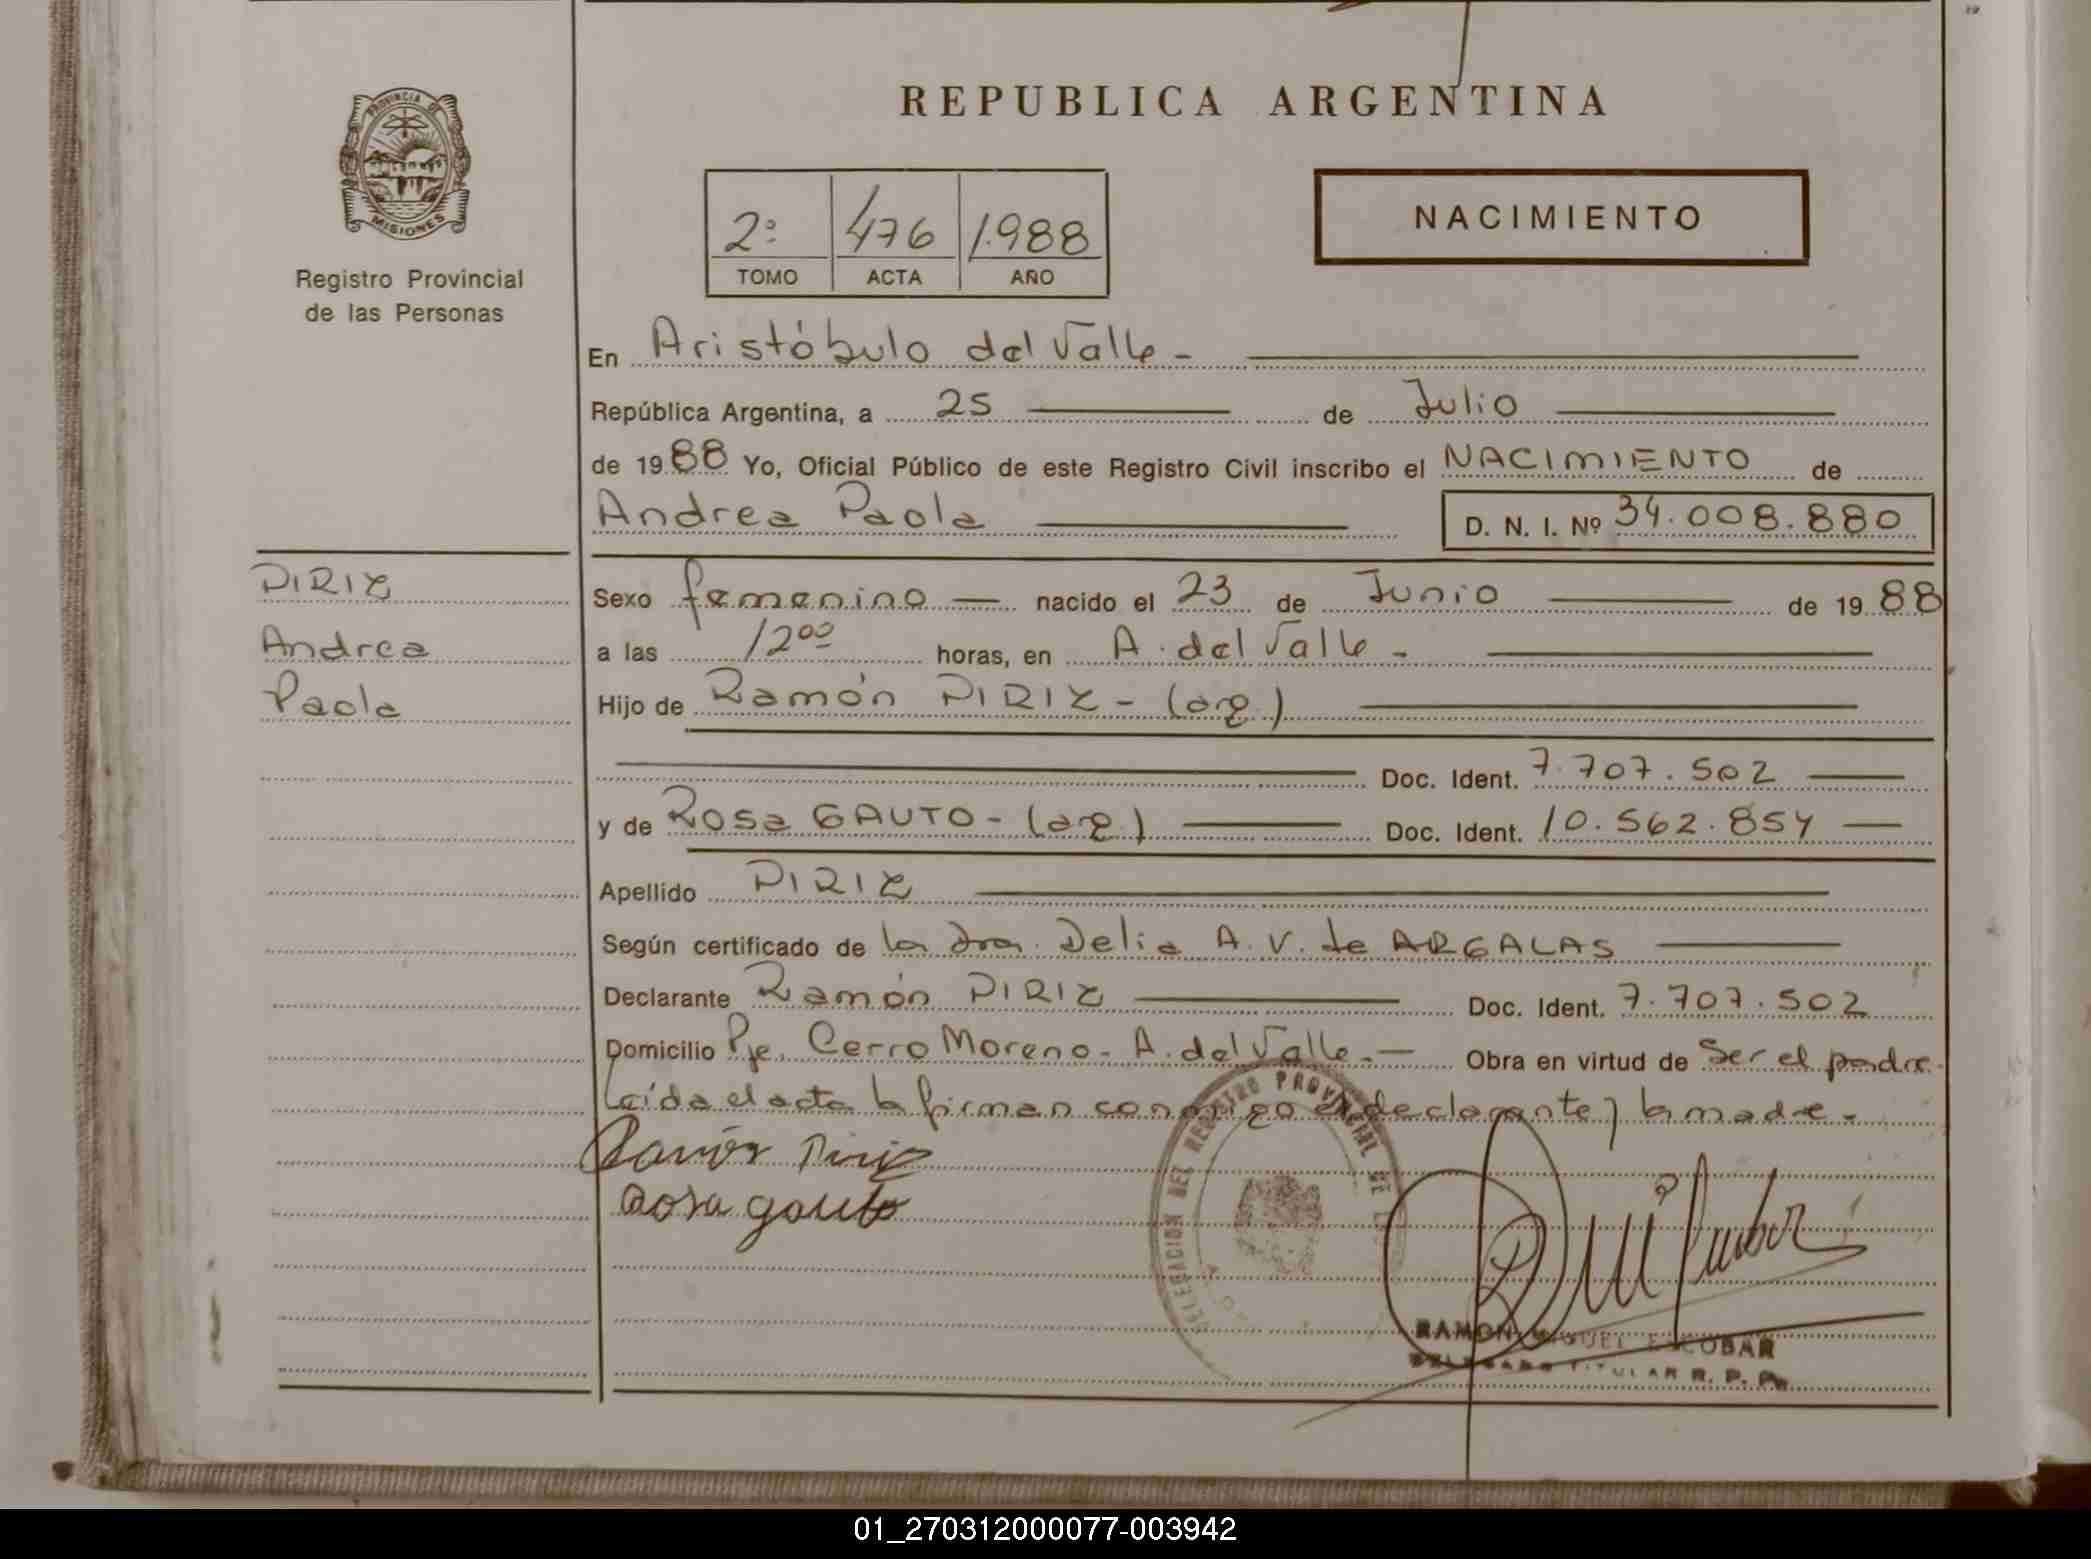 REPUBLICA ARGENTINA
PROVINCIA DE
MISIONES
Registro Provincial
de las Personas
2º 476 1.988
TOMO ACTA AÑO
NACIMIENTO
En Aristóbulo del Valle -
República Argentina, a 25 de Julio
de 1988 Yo, Oficial Público de este Registro Civil inscribo el NACIMIENTO de
Andrea Paola D. N. I. Nº 34.008.880
PIRIZ
Andrea
Paola
Sexo femenino nacido el 23 de Junio de 1988
a las 12 00 horas, en A. del Valle -
Hijo de Ramón PIRIZ - (arg.)
Doc. Ident. 7.707.502
y de Rosa GAUTO - (arg.) Doc. Ident. 10.562.854
Apellido PIRIZ
Según certificado de la Dra. Delia A. V. de ARGALAS
Declarante Ramón PIRIZ Doc. Ident. 7.707.502
Domicilio Pje. Cerro Moreno - A. del Valle - Obra en virtud de Ser el padre.
Leída el acta la firman conmigo el declarante y la madre -
Ramón Piriz
Rosa gauto
DELEGACION DEL REGISTRO PROVINCIAL DE
RAMON MIGUEL ESCOBAR
DELEGADO TITULAR R. P. P.
01_270312000077-003942